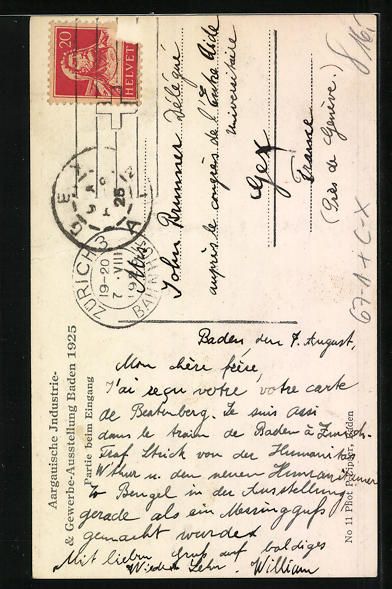 20
HELVETIA
GEX
AIN
25
ZÜRICH 3
19-20
7. VIII
BAHNHOF
John Brunner Délégué
auprès le congrès de l'Entre Aide
universitaire
Gex
France
(Près de Genève.)
Aargauische Industrie-
& Gewerbe-Ausstellung Baden 1925
Partie beim Eingang
No 11 Phot Baden
Baden den 7. August,
Mon chère frère,
J'ai reçu votre votre carte
de Beatenberg. Je suis assi
dans le train de Baden à Zurich.
von der Humanitas
W'thur u. den neuen
to Bengel in der Ausstellung
gerade als ein Messingguss
gemacht wurde.
Mit lieben Gruss auf baldiges
Wieder Sehn. William